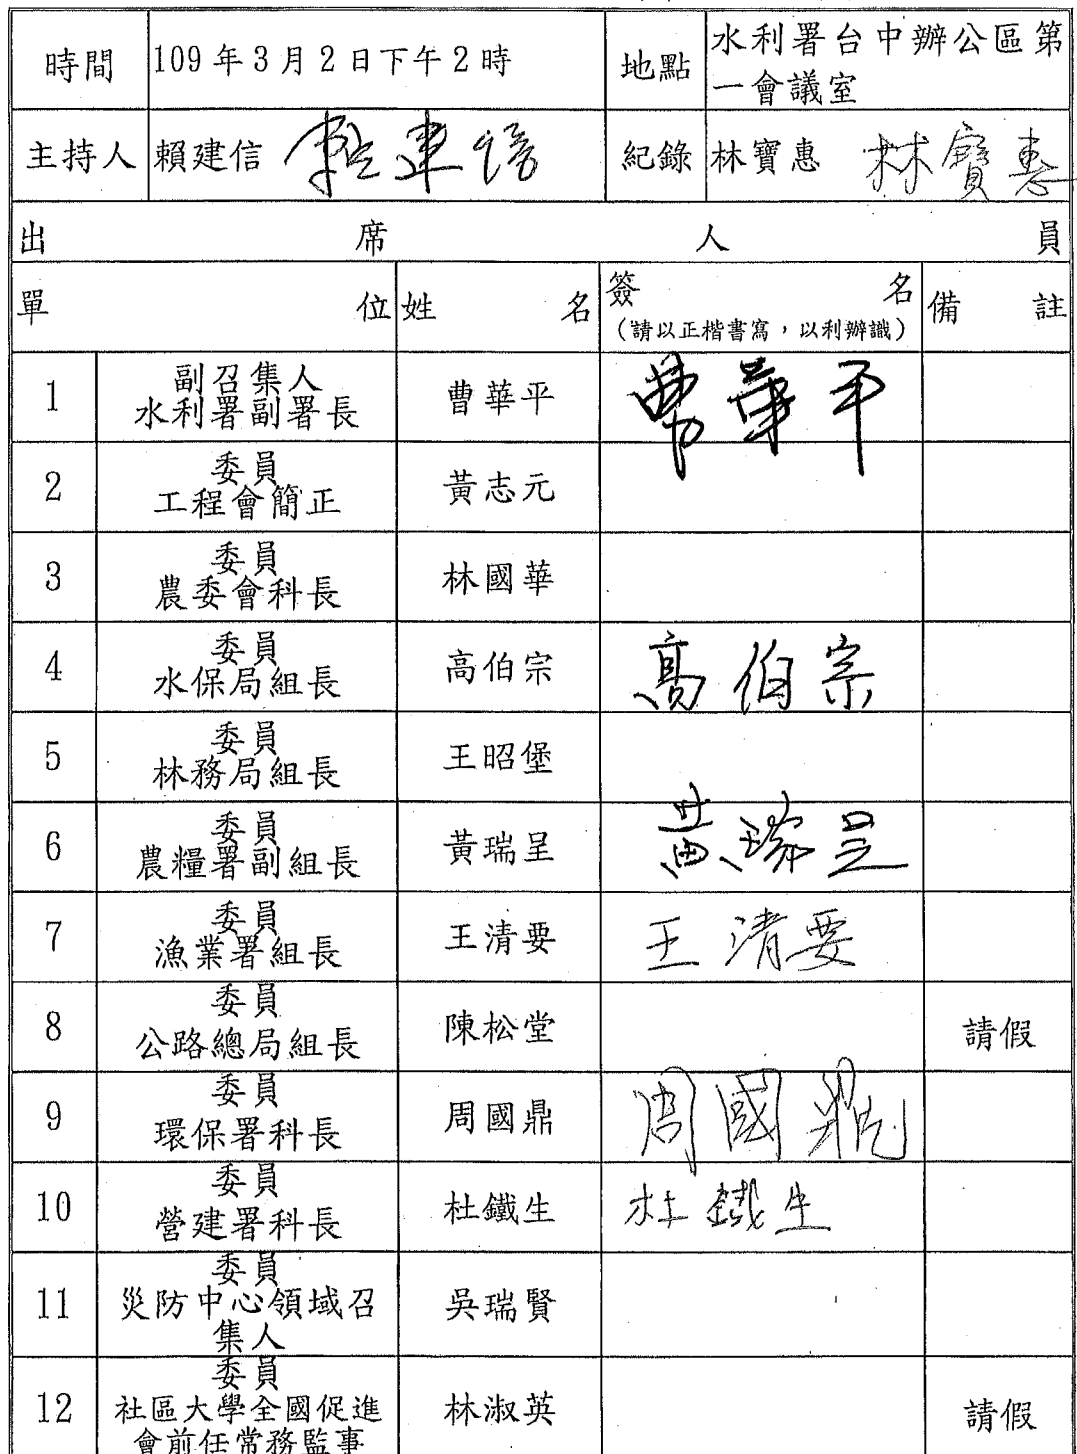 時間 109年3月2日下午2時 地點 水利署台中辦公區第
一會議室
主持人 賴建信 賴建信 紀錄 林寶惠 林寶惠
出席人員
單位 姓名 簽名 備註
(請以正楷書寫，以利辦識)
1 副召集人
水利署副署長 曹華平 曹華平
2 委員
工程會簡正 黃志元
3 委員
農委會科長 林國華
4 委員
水保局組長 高伯宗 高伯宗
5 委員
林務局組長 王昭堡
6 委員
農糧署副組長 黃瑞呈 黃瑞呈
7 委員
漁業署組長 王清要 王清要
8 委員
公路總局組長 陳松堂 請假
9 委員
環保署科長 周國鼎 周國鼎
10 委員
營建署科長 杜鐵生 杜鐵生
11 委員
災防中心領域召
集人 吳瑞賢
12 委員
社區大學全國促進
會前任常務監事 林淑英 請假